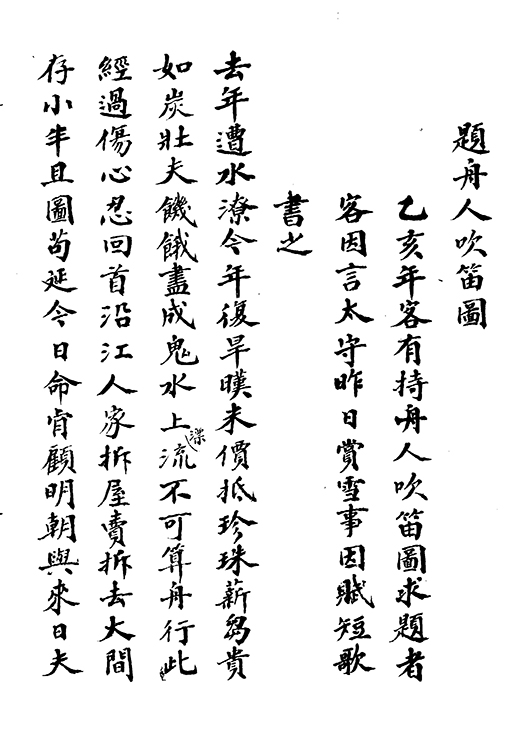 題舟人吹笛圖
乙亥年客有持舟人吹笛圖求題者
客因言太守昨日賞雪事因賦短歌
書之
去年遭水潦今年復旱暵米價抵珍珠薪芻貴
如炭壯夫饑餓盡成鬼水上漂流不可算舟行此
經過傷心忍回首沿江人家拆屋賣拆去大間
存小半且圖苟延今日命肯顧明朝與來日夫